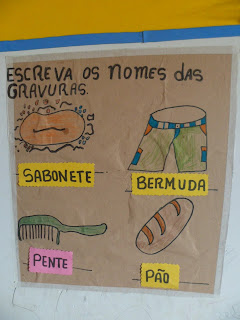 ESCREVA OS NOMES DAS
GRAVURAS.
SABONETE
BERMUDA
PENTE
PÃO